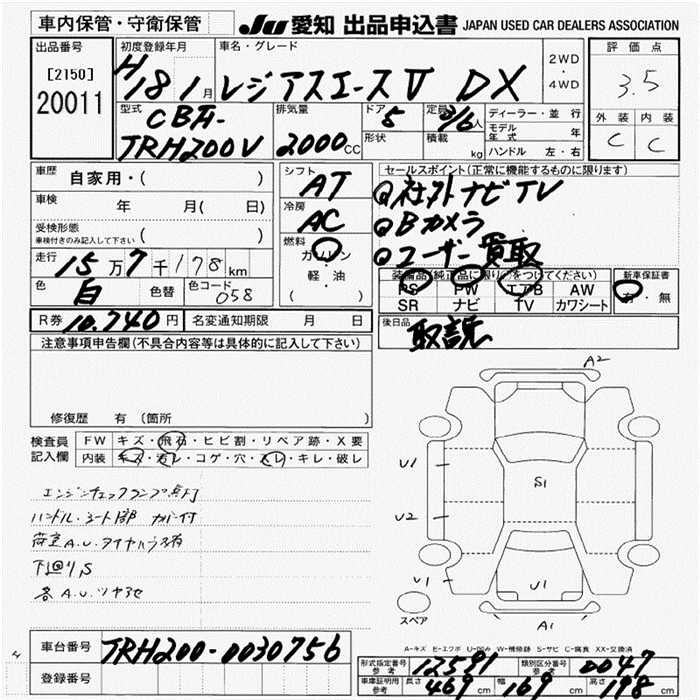 車内保管・守衛保管
JU 愛知 出品申込書 JAPAN USED CAR DEALERS ASSOCIATION
出品番号
[2150]
20011
初度登録年月
H18 1月
車名・グレード
レジアスエースV DX
2WD
・
4WD
評価点
3.5
外装 内装
C C
型式
CBF-
TRH200V
排気量
2000CC
ドア
5
形状
定員
3/6人
積載
kg
ディーラー・並行
モデル年式 年
ハンドル 左・右
車歴
自家用・( )
車検 年 月( 日)
受検形態
車検付きのみ記入して下さい ( )
走行
15万7千178km
色
白
色替
色コード
058
R券 10.740円 名変通知期限 月 日
シフト
AT
冷房
AC
燃料
ガソリン
軽・油
( )
セールスポイント(正常に機能するものに限ります)
社外ナビTV
Bカメラ
ユーザー買取
装備品(純正品に限り○をつけてください)
PS PW エアB AW
SR ナビ TV カワシート
新車保証書
有・無
後日品
取説
注意事項申告欄(不具合内容等は具体的に記入して下さい)
修復歴 有 (箇所 )
検査員
記入欄
FW キズ・飛石・ヒビ割・リペア跡・X要
内装 キズ・汚レ・コゲ・穴・スレ・キレ・破レ
エンジンチェックランプ点灯
ハンドル・シート部 カバー付
荷室A.U.タイヤハウス有
下回りS
各A.U.ツヤアセ
A2
U1
S1
U2
U1
U1
A1
スペア
A-キズ E-エクボ U-凹み W-補修跡 S-サビ C-腐食 XX-交換済
車台番号 TRH200-0030756
登録番号
型式指定番号
参考
12591
類別区分番号
参考
0047
車庫証明用
参考
長さ 469cm 幅 169cm 高さ 198cm